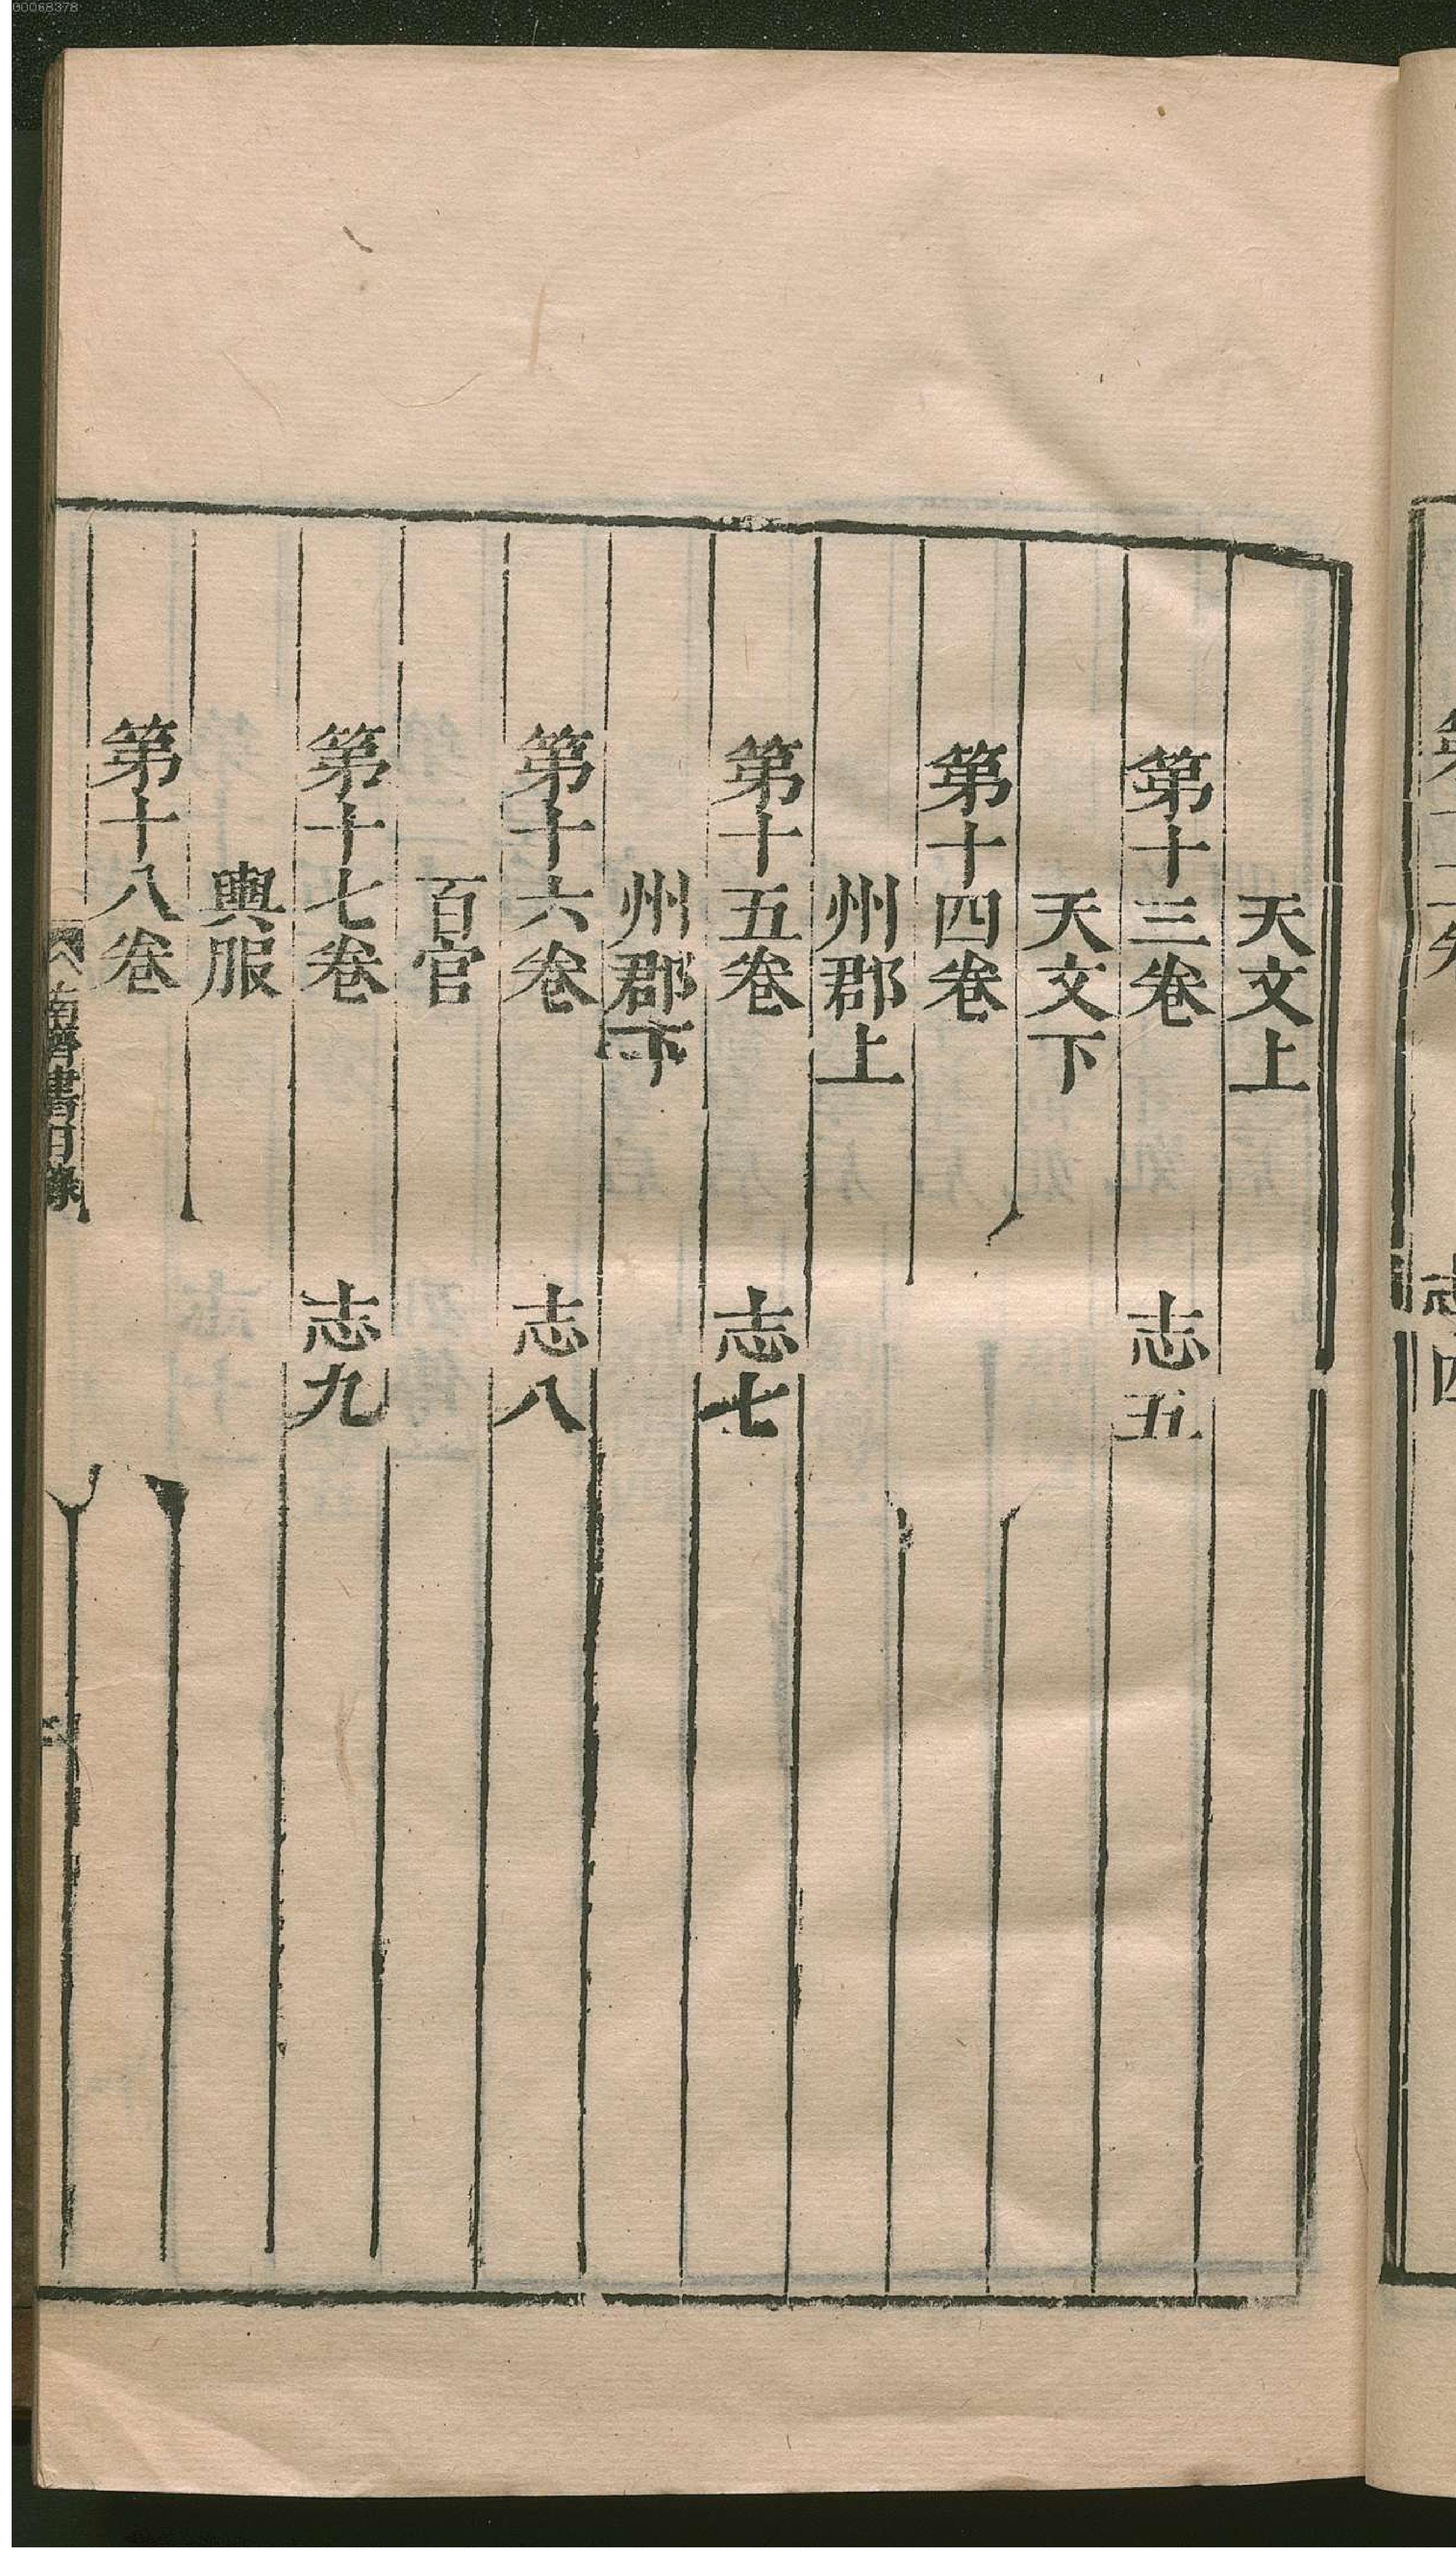 天文上
第十三卷 志五
天文下
第十四卷
州郡上
第十五卷 志七
州郡下
第十六卷 志八
百官
第十七卷 志九
輿服
第十八卷
南齊書目錄
00068378